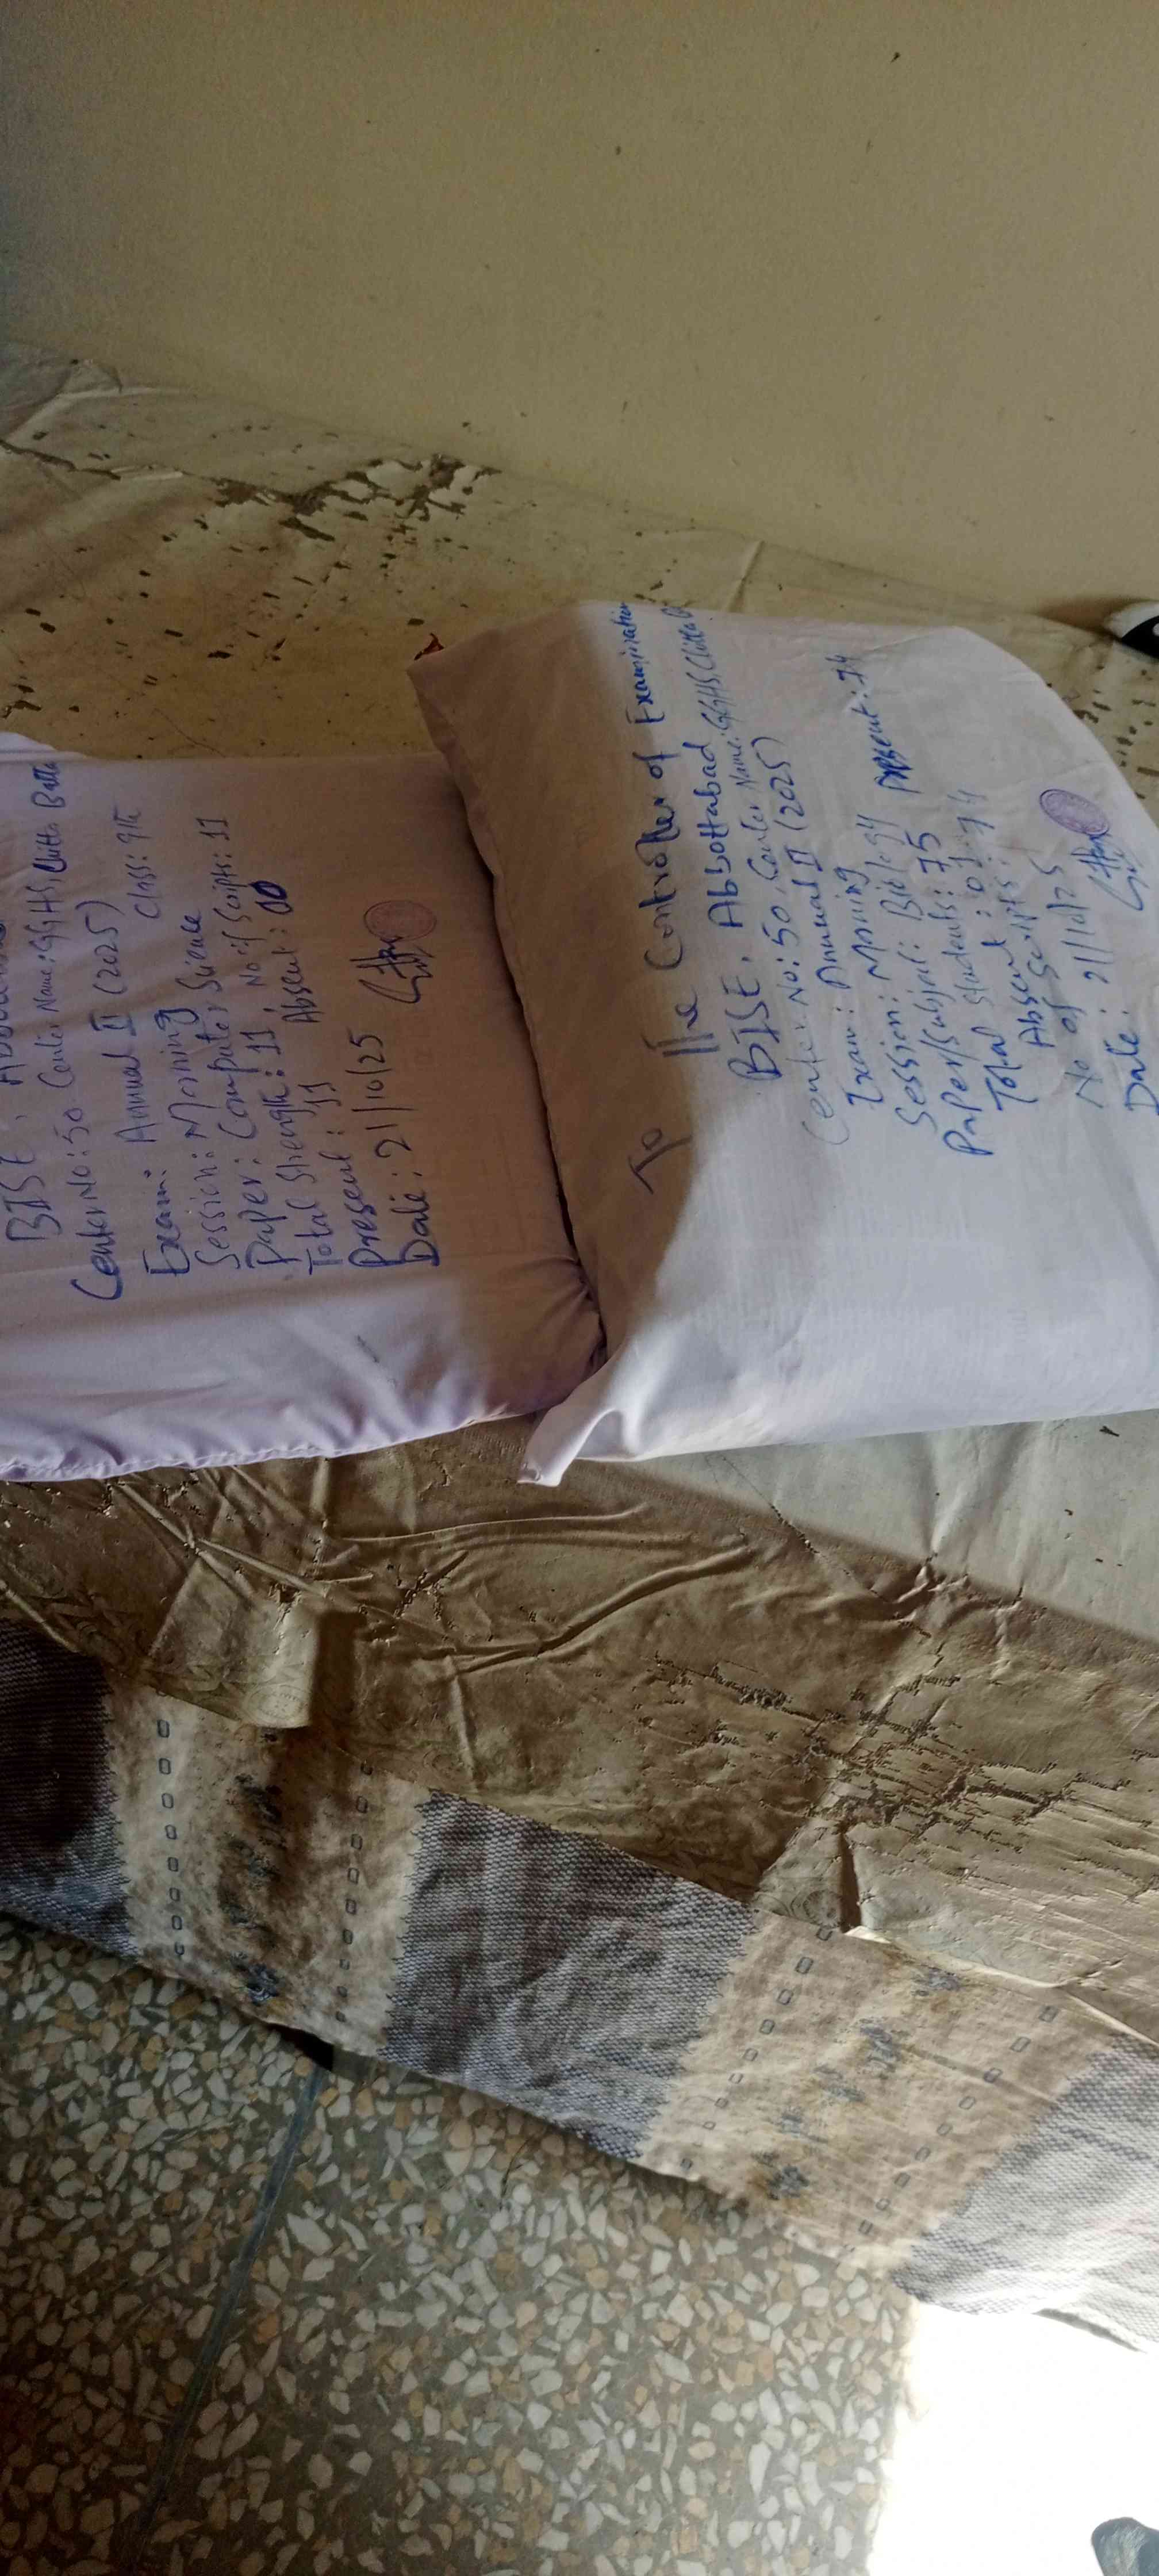 BISE, Abbottabad
Center No: 50 Center Name: GGHS, Chitta Batta
Exam: Annual II (2025) Class: 9th
Session: Morning
Paper: Computer Science
Total Strength: 11, No of Scripts: 11
Present: 11 Absent: 00
Date: 21/10/25
To
The Controller of Examination
BISE, Abbottabad
Center No: 50, Center Name: GGHS Chitta
Exam: Annual II (2025)
Session: Morning
Paper/Subject: Biology
Total Students: 75 Present: 74
Absent: 01
No of Scripts: 74
Date: 21/10/25